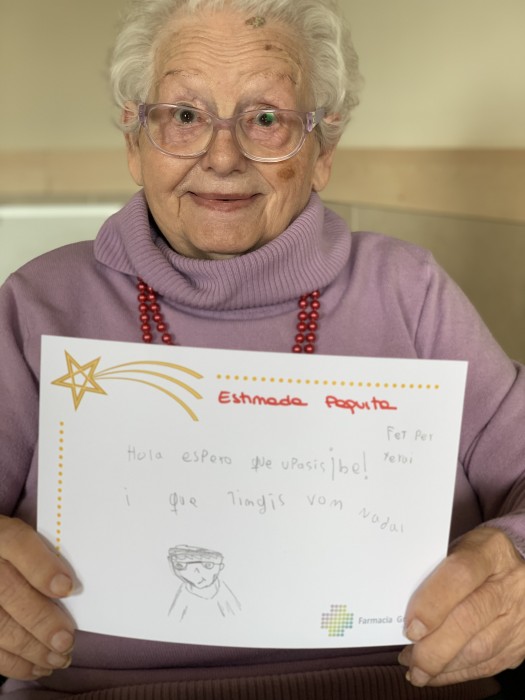 Estimada Paquita
Fet per
Hola espero que upasis ¡be!
i que tingis vom Nadal
Farmacia G